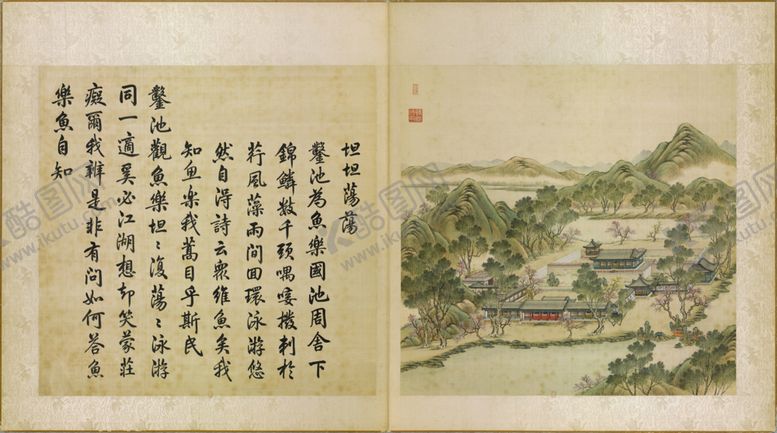 坦坦蕩蕩
鑿池為魚樂國池周舍下
錦鱗數千頭喁唼撥剌於
荇風藻雨間回環泳游悠
然自得詩云衆維魚矣我
知魚樂我蒿目乎斯民
鑿池觀魚樂坦〻復蕩〻泳游
同一適奚必江湖想却笑蒙莊
癡爾我辨是非有問如何答魚
樂魚自知
酷图网
www.ikutu.com